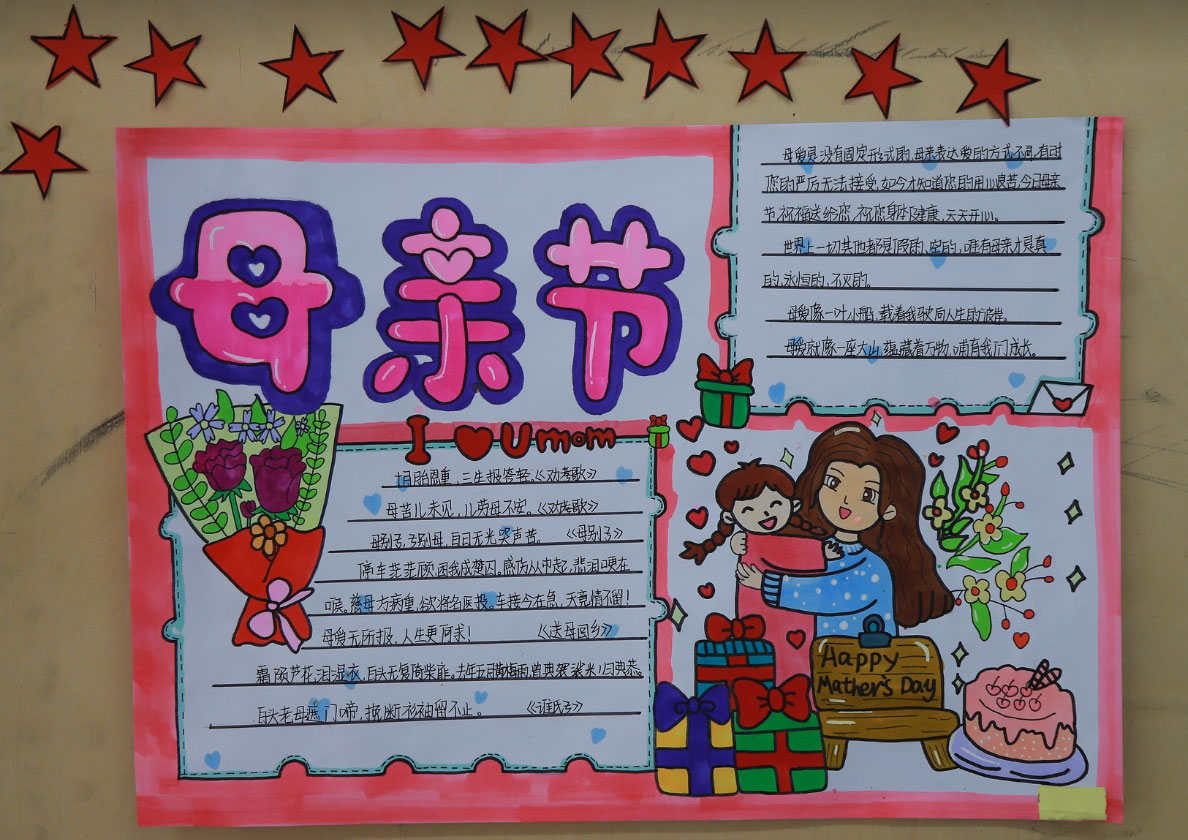 母亲节
母爱是没有固定形式的,母亲表达爱的方式不同,有时
您的严厉无法接受,如今才知道您的用心良苦,今日母亲
节,祝福送给您,祝您身体健康,天天开心。
世界上一切其他都是假的、空的,唯有母亲才是真
的,永恒的,不灭的。
母爱像一叶小船,载着我驶向人生的彼岸。
母爱就像一座大山,蕴藏着万物,哺育我们成长。
I U mom
十月胎恩重,三生报答轻。《劝孝歌》
母苦儿未见,儿劳母不安。《劝孝歌》
母别子,子别母,白日无光哭声苦。 《母别子》
停车茫茫顾,困我成楚囚。感伤从中起,悲泪哽在
喉。慈母方病重,欲将名医投。车接今在急,天竟情不留!
母爱无所报,人生更何求! 《送母回乡》
霜陨芦花泪湿衣,白头无复倚柴扉。去年五月黄梅雨,曾典袈裟籴米归。
白头老母遮门啼,挽断衫袖留不止。 《谁氏子》
Happy
Mather's Day